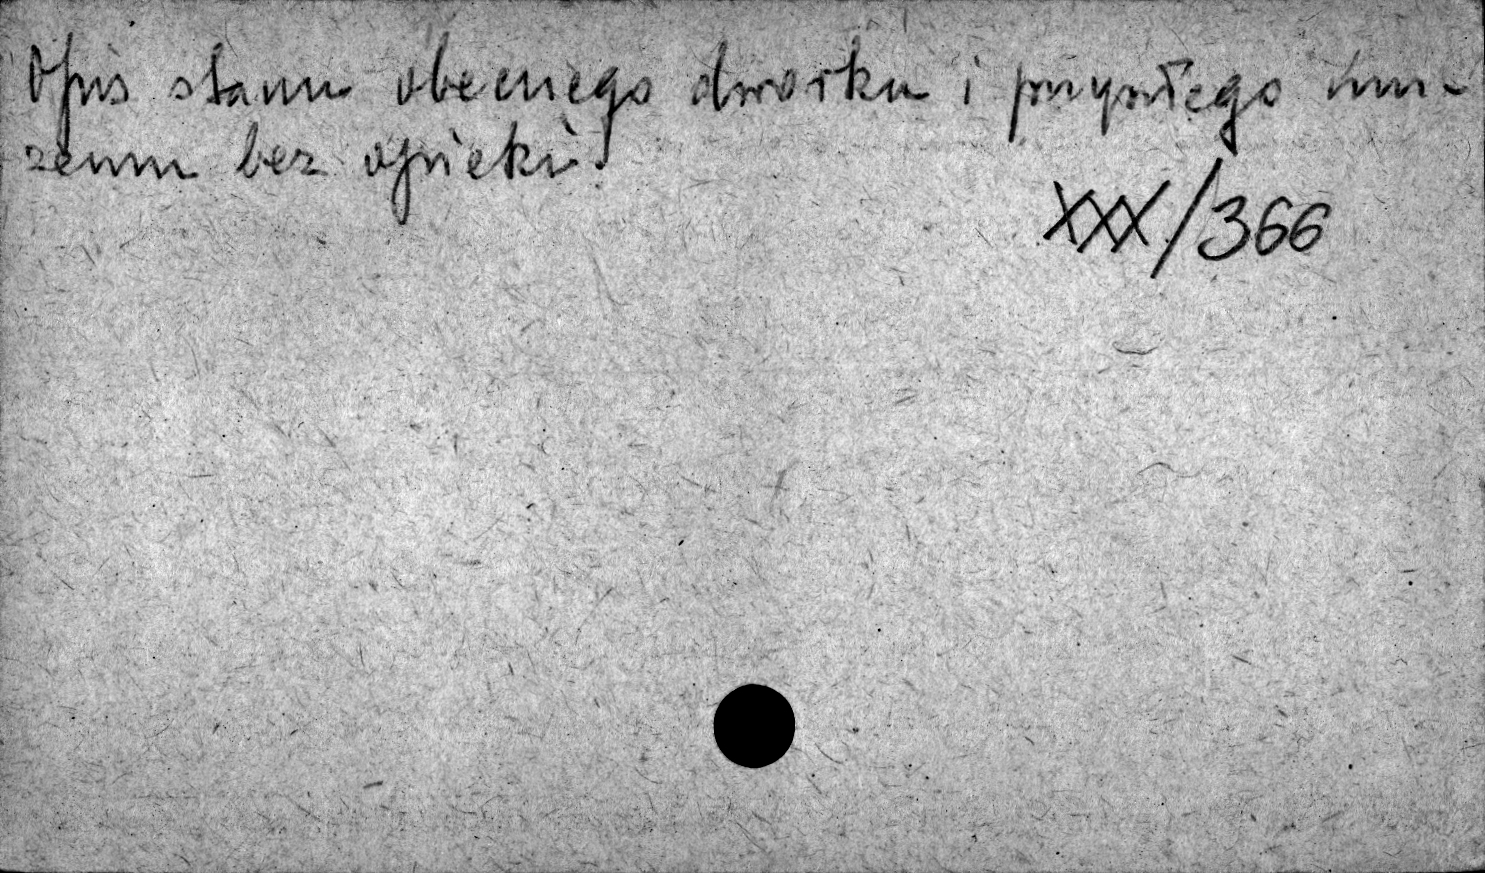 Opis stanu obecnego dworku i przyszłego mu-
zeum bez opieki!
XXX/366